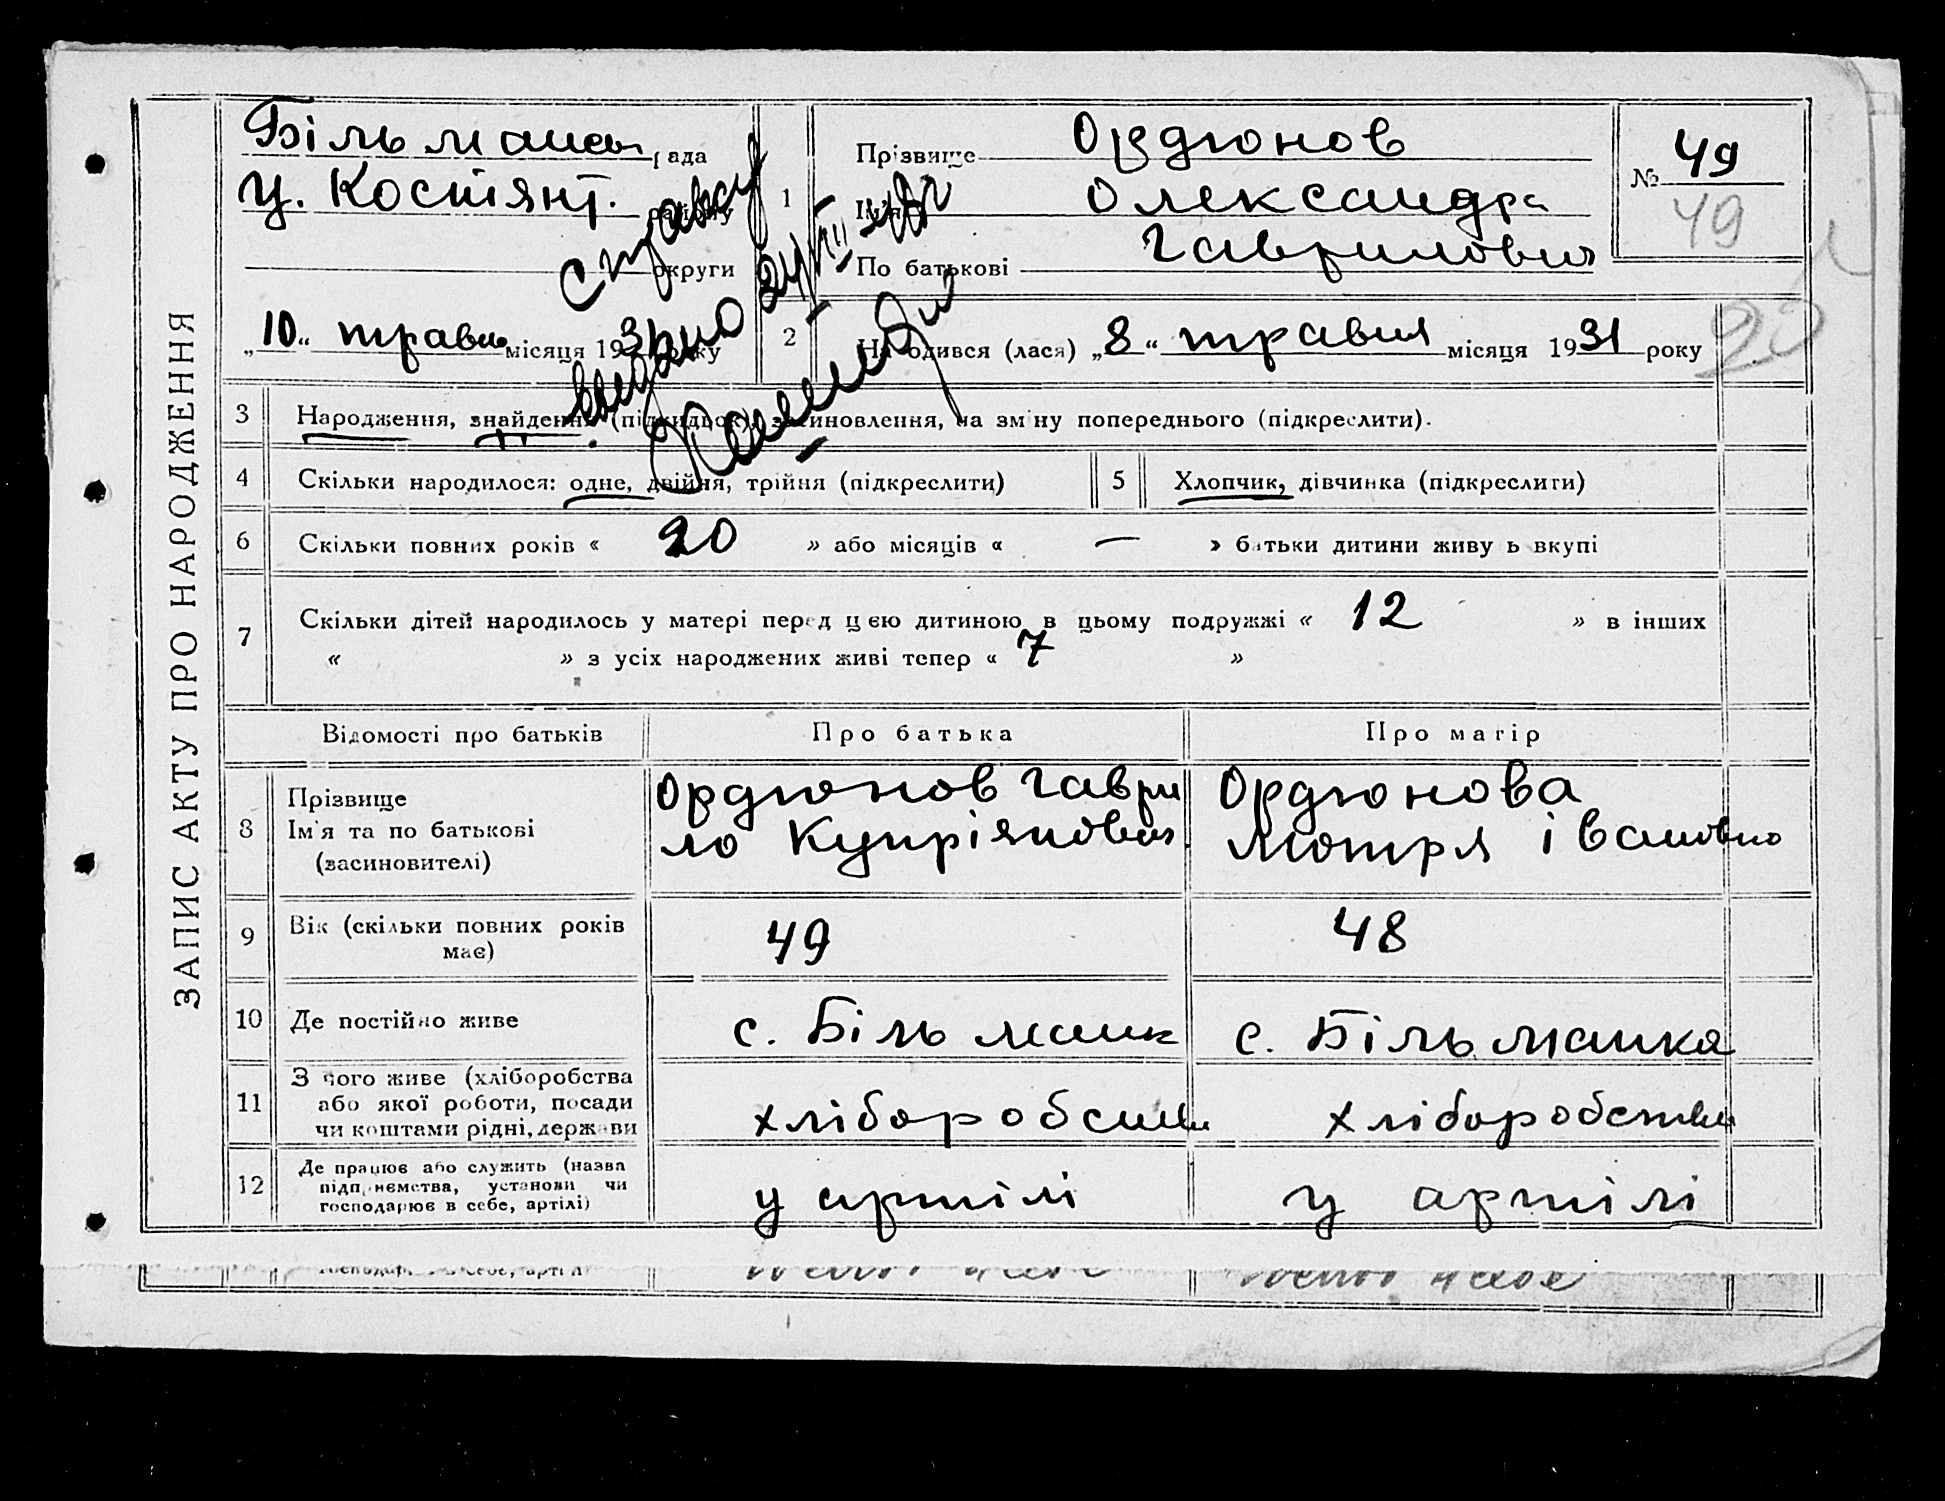 ЗАПИС АКТУ ПРО НАРОДЖЕННЯ
рада
Ц. Костянт. району
округи
1
Прізвище Ордюнов
Ім'я Олександра
По батькові Гаврилович
№ 49
49
20
справку
видано
„10“ травня місяця 1931 року
2
Народився (лася) „8“ травня місяця 1931 року
3 Народження, знайдення (підкидьок), засиновлення, на зміну попереднього (підкреслити).
4 Скільки народилося: одне, двійня, трійня (підкреслити)
5 Хлопчик, дівчинка (підкреслити)
6 Скільки повних років « 20 » або місяців « — » батьки дитини живуть вкупі
7 Скільки дітей народилось у матері перед цією дитиною в цьому подружжі « 12 » в інших
« » з усіх народжених живі тепер « 7 »
Відомості про батьків Про батька Про матір
8 Прізвище
Ім'я та по батькові
(засиновителі)
Ордюнов Гаври
ло Купріянович
Ордюнова
Мотря Івановна
9 Вік (скільки повних років
має)
49
48
10 Де постійно живе
с. Більманк
с. Більманка
11 З чого живе (хліборобства
або якої роботи, посади
чи коштами рідні, держави
хлібороbство
хліборобство
12 Де працює або служить (назва
підприємства, установи чи
господарює в себе, артілі)
у артілі
у артілі